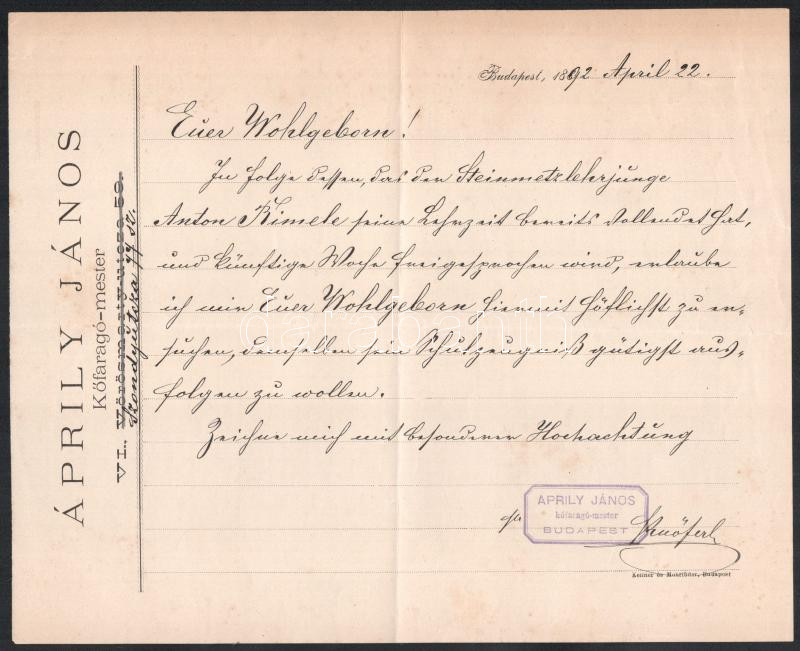 ÁPRILY JÁNOS
Kőfaragó-mester
VI., Vörösmarty-utcza 59.
Szondyutcza 77 sz.
Budapest, 1892 April 22.
Euer Wohlgeborn!
In folge dessen, das der Steinmetzlehrjunge
Anton Kimele seine Lehrzeit bereits vollendet hat,
und künftige Woche freigesprochen wird, erlaube
ich mir Euer Wohlgeborn hiermit höflichst zu er-
suchen, demselben sein Schulzeugniß gütigst aus-
folgen zu wollen.
Zeichne mich mit besonderer Hochachtung
APRILY JÁNOS
kőfaragó-mester
BUDAPEST
Knöferl